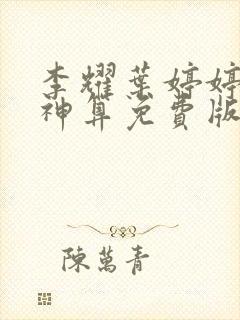 李耀葉婷婷
神算免費版
陳萬青